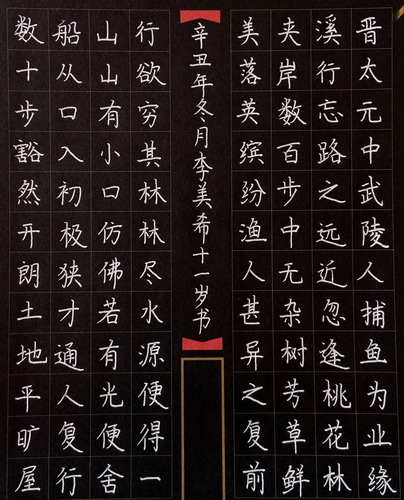 晋太元中武陵人捕鱼为业缘
溪行忘路之远近忽逢桃花林
夹岸数百步中无杂树芳草鲜
美落英缤纷渔人甚异之复前
辛丑年冬月李美希十一岁书
行欲穷其林林尽水源便得一
山山有小口仿佛若有光便舍
船从口入初极狭才通人复行
数十步豁然开朗土地平旷屋